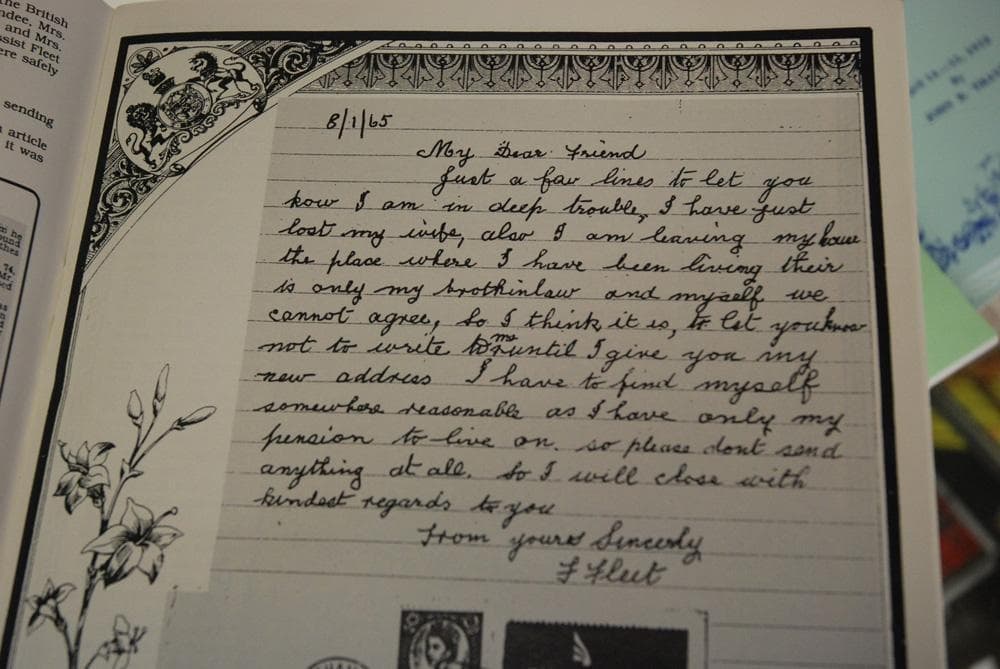 he British
ndee, Mrs.
and Mrs.
ssist Fleet
ere safely
sending
article
it was
8/1/65
My Dear Friend
Just a few lines to let you
kow I am in deep trouble, I have just
lost my wife, also I am leaving my house
the place where I have been living their
is only my brothinlaw and myself we
cannot agree, so I think it is, to let you know
not to write to me until I give you my
new address I have to find myself
somewhere reasonable as I have only my
pension to live on. so please dont send
anything at all. So I will close with
kindest regards to you
From yours Sincerly
F Fleet